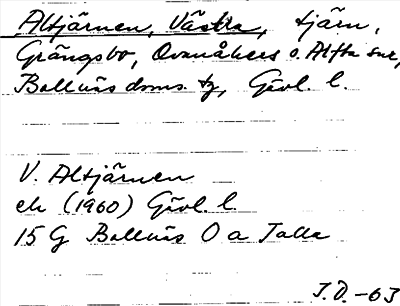 Altjärnen, Västra, tjärn,
Grängsbo, Ovanåkers o. Alfta snr,
Bollnäs doms. tg, Gävl. l.
V. Altjärnen
ek (1960) Gävl. l.
15 G Bollnäs O a Talla
J.D. -63